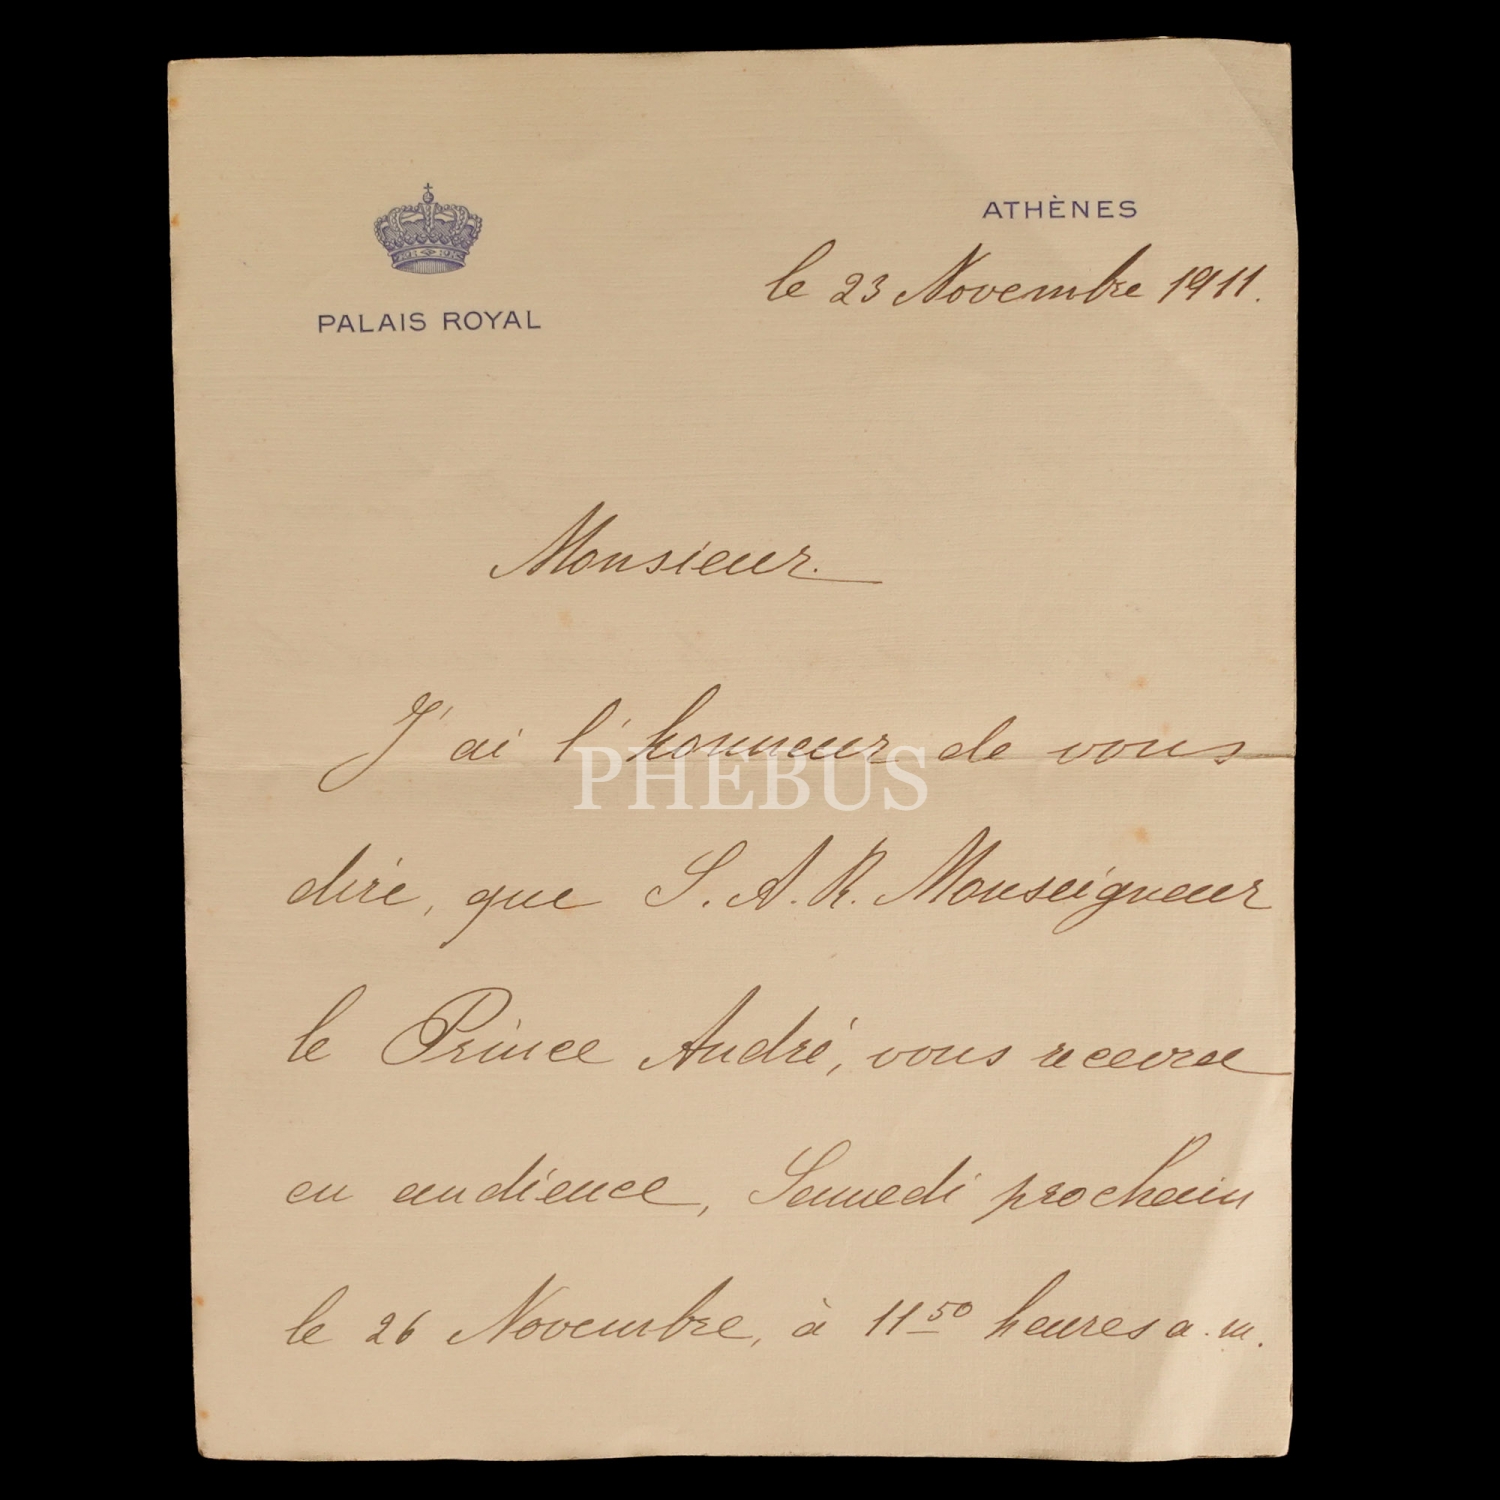 PALAIS ROYAL
ATHÈNES
le 23 Novembre 1911.
Monsieur.
J'ai l'honneur de vous
dire, que S. A. R. Monseigneur
le Prince André, vous recevra
en audience, Samedi prochain
le 26 Novembre, à 11 50 heures a.m.
PHEBUS